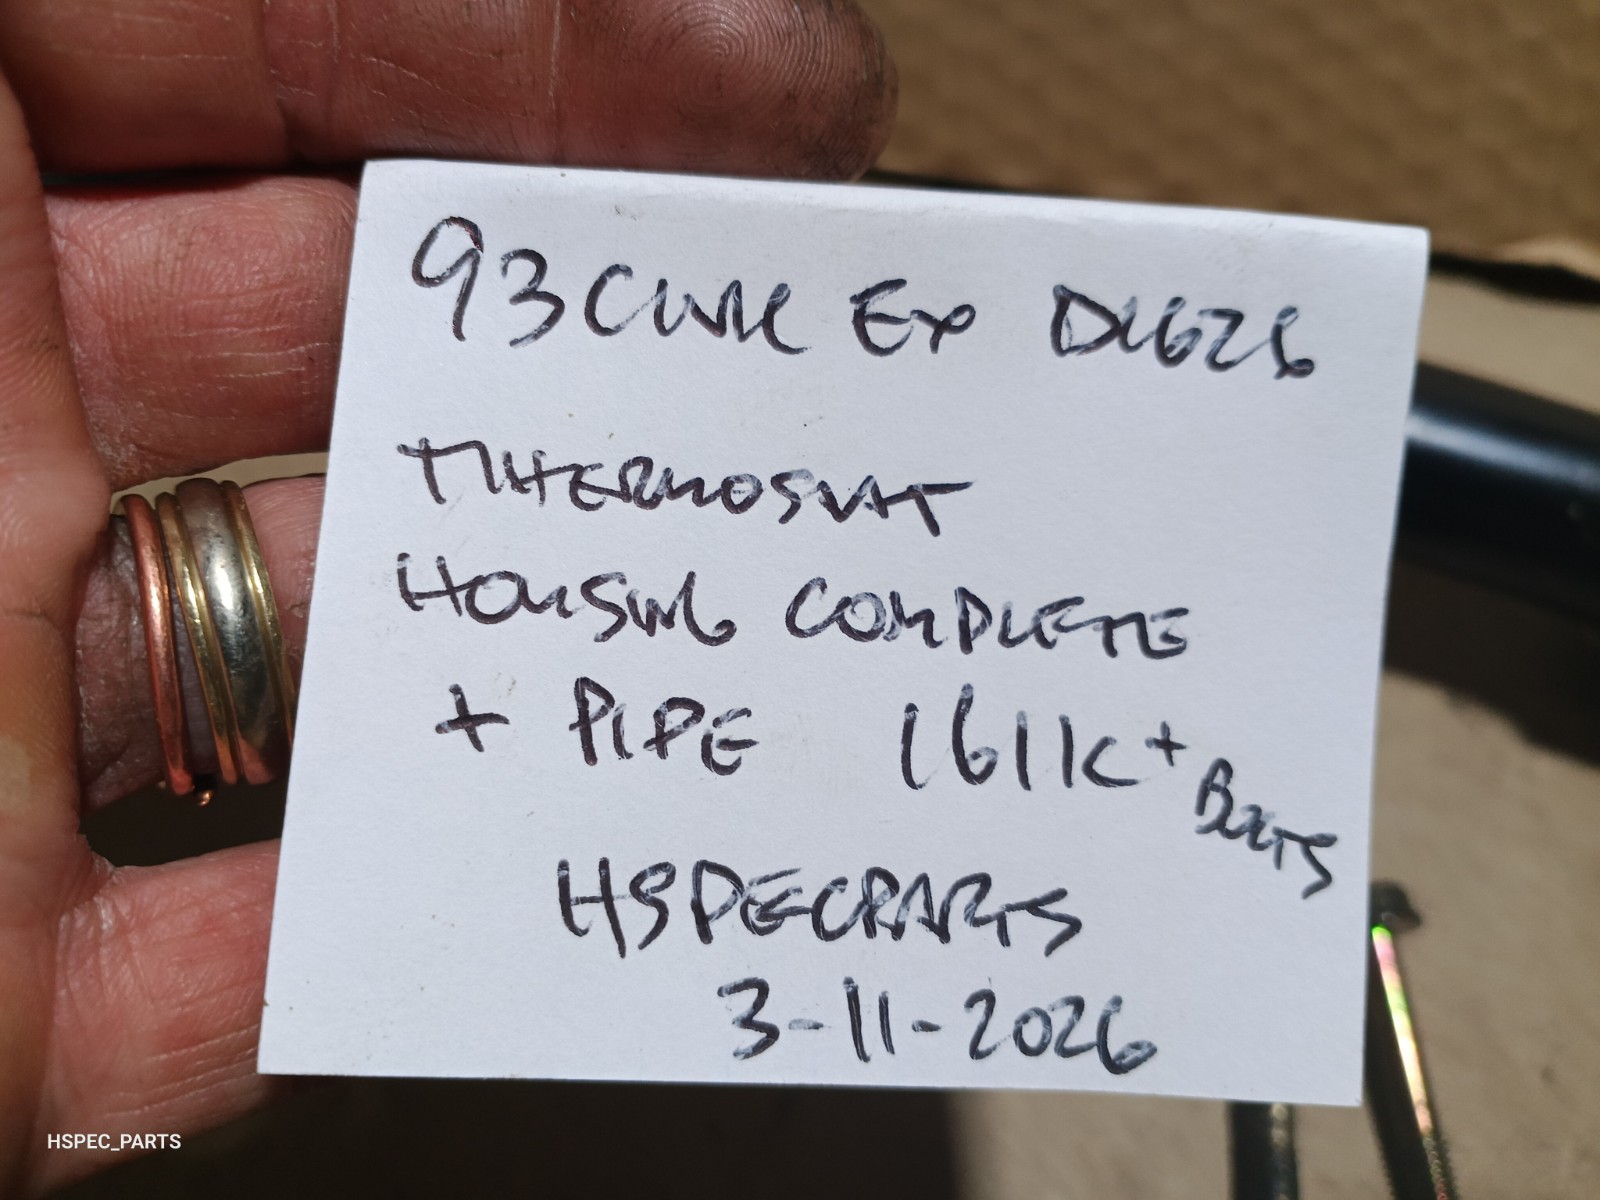 93 Civic Ex D16Z6
THERMOSTAT
HOUSING COMPLETE
+ PIPE 161K + BOLTS
HSPECPARTS
3-11-2026
HSPEC_PARTS